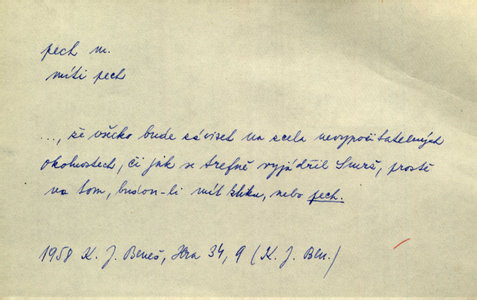 pech m.
míti pech
..., že všecko bude záviset na zcela nevypočitatelných
okolnostech, či jak se trefně vyjádřil Smrš, prostě
na tom, budou-li mít kliku, nebo pech.
1958 K. J. Beneš, Hra 34, 9 (K. J. Ben.)